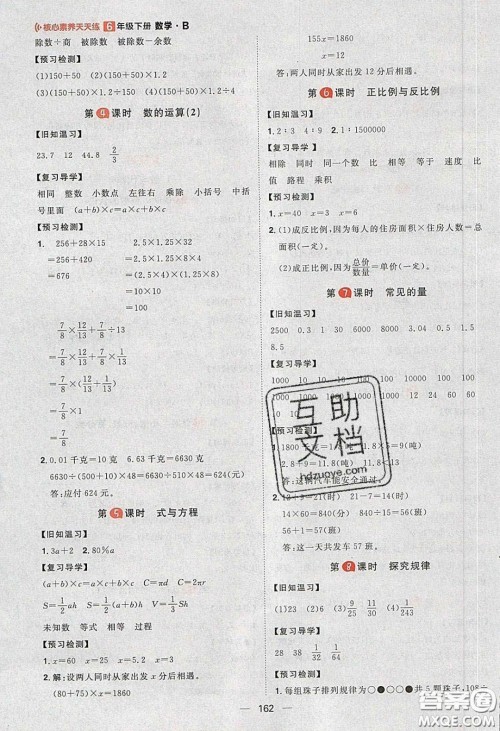 核心素养天天练 6年级下册 数学·B
除数÷商 被除数 被除数-余数
【预习检测】
(1)150+50 (2)(150+50)×1.2
(3)(150+50)×1.2 (4)(150+50)×1.2÷4
第4课时 数的运算(2)
【旧知温习】
23.7 12 44.8 2/3
【复习导学】
相同 整数 小数点 左往右 乘除 小括号 中括
号里面 (a+b)×c=a×c+b×c
【预习检测】
1. 256+28×15 2.5×1.25×32
=256+420 =2.5×1.25×4×8
=676 =(2.5×4)×(1.25×8)
7/8×12/13+7/8÷13 =10×10
=7/8×12/13+7/8×1/13 =100
=7/8×(12/13+1/13)
=7/8×1
=7/8
2. 0.01千克=10克 6.63千克=6630克
6630÷(500+10)×48=6630÷510×48=624(元)
答:应付624元。
第5课时 式与方程
【旧知温习】
1. 3a+2 2. 80%a
【复习导学】
(a+b)×c=a×c+b×c S=ab C=(a+b)×2
S=1/2ah S=1/2(a+b)h V=1/3Sh
未知数 等式 相等 方程
【预习检测】
1. x=60 x=25 x=32
2. 解:设两人同时从家出发x分后相遇。
(80+75)×x=1860
155x=1860
x=12
答:两人同时从家出发12分后相遇。
第6课时 正比例与反比例
【旧知温习】
1. 2:3 4:9 2. 1:1500000
【复习导学】
相除 同时 同一个数 比 相等 等于 速度 比
值 路程 乘积
【预习检测】
1. x=40 x=3 x=6
2. (1)成反比例,因为每人的住房面积×住房人数=总
面积(一定)。
(2)成正比例,因为总价/数量=单价(一定)。
第7课时 常见的量
【旧知温习】
2500 0.3 1500 2 6.039 8200 4 31
8.5
【复习导学】
【预习检测】
2.8+9=11.8(吨)
2. 12+9=21(时)
14×60=840(分) 840÷15=56(班)
56+1=57(班)
答:这一天共发车57班。
课时 探究规律
【旧知温习】
(1)23 (2)6 9/25 11/30 (3)1/243
【复习导学】
(1)24 32 (2)
【预习检测】
1. 每组珠子排列规律为○●○●●共5颗珠子,108÷
162
互助
文档
hdzuoye.com
答案圈
MXQE.COM